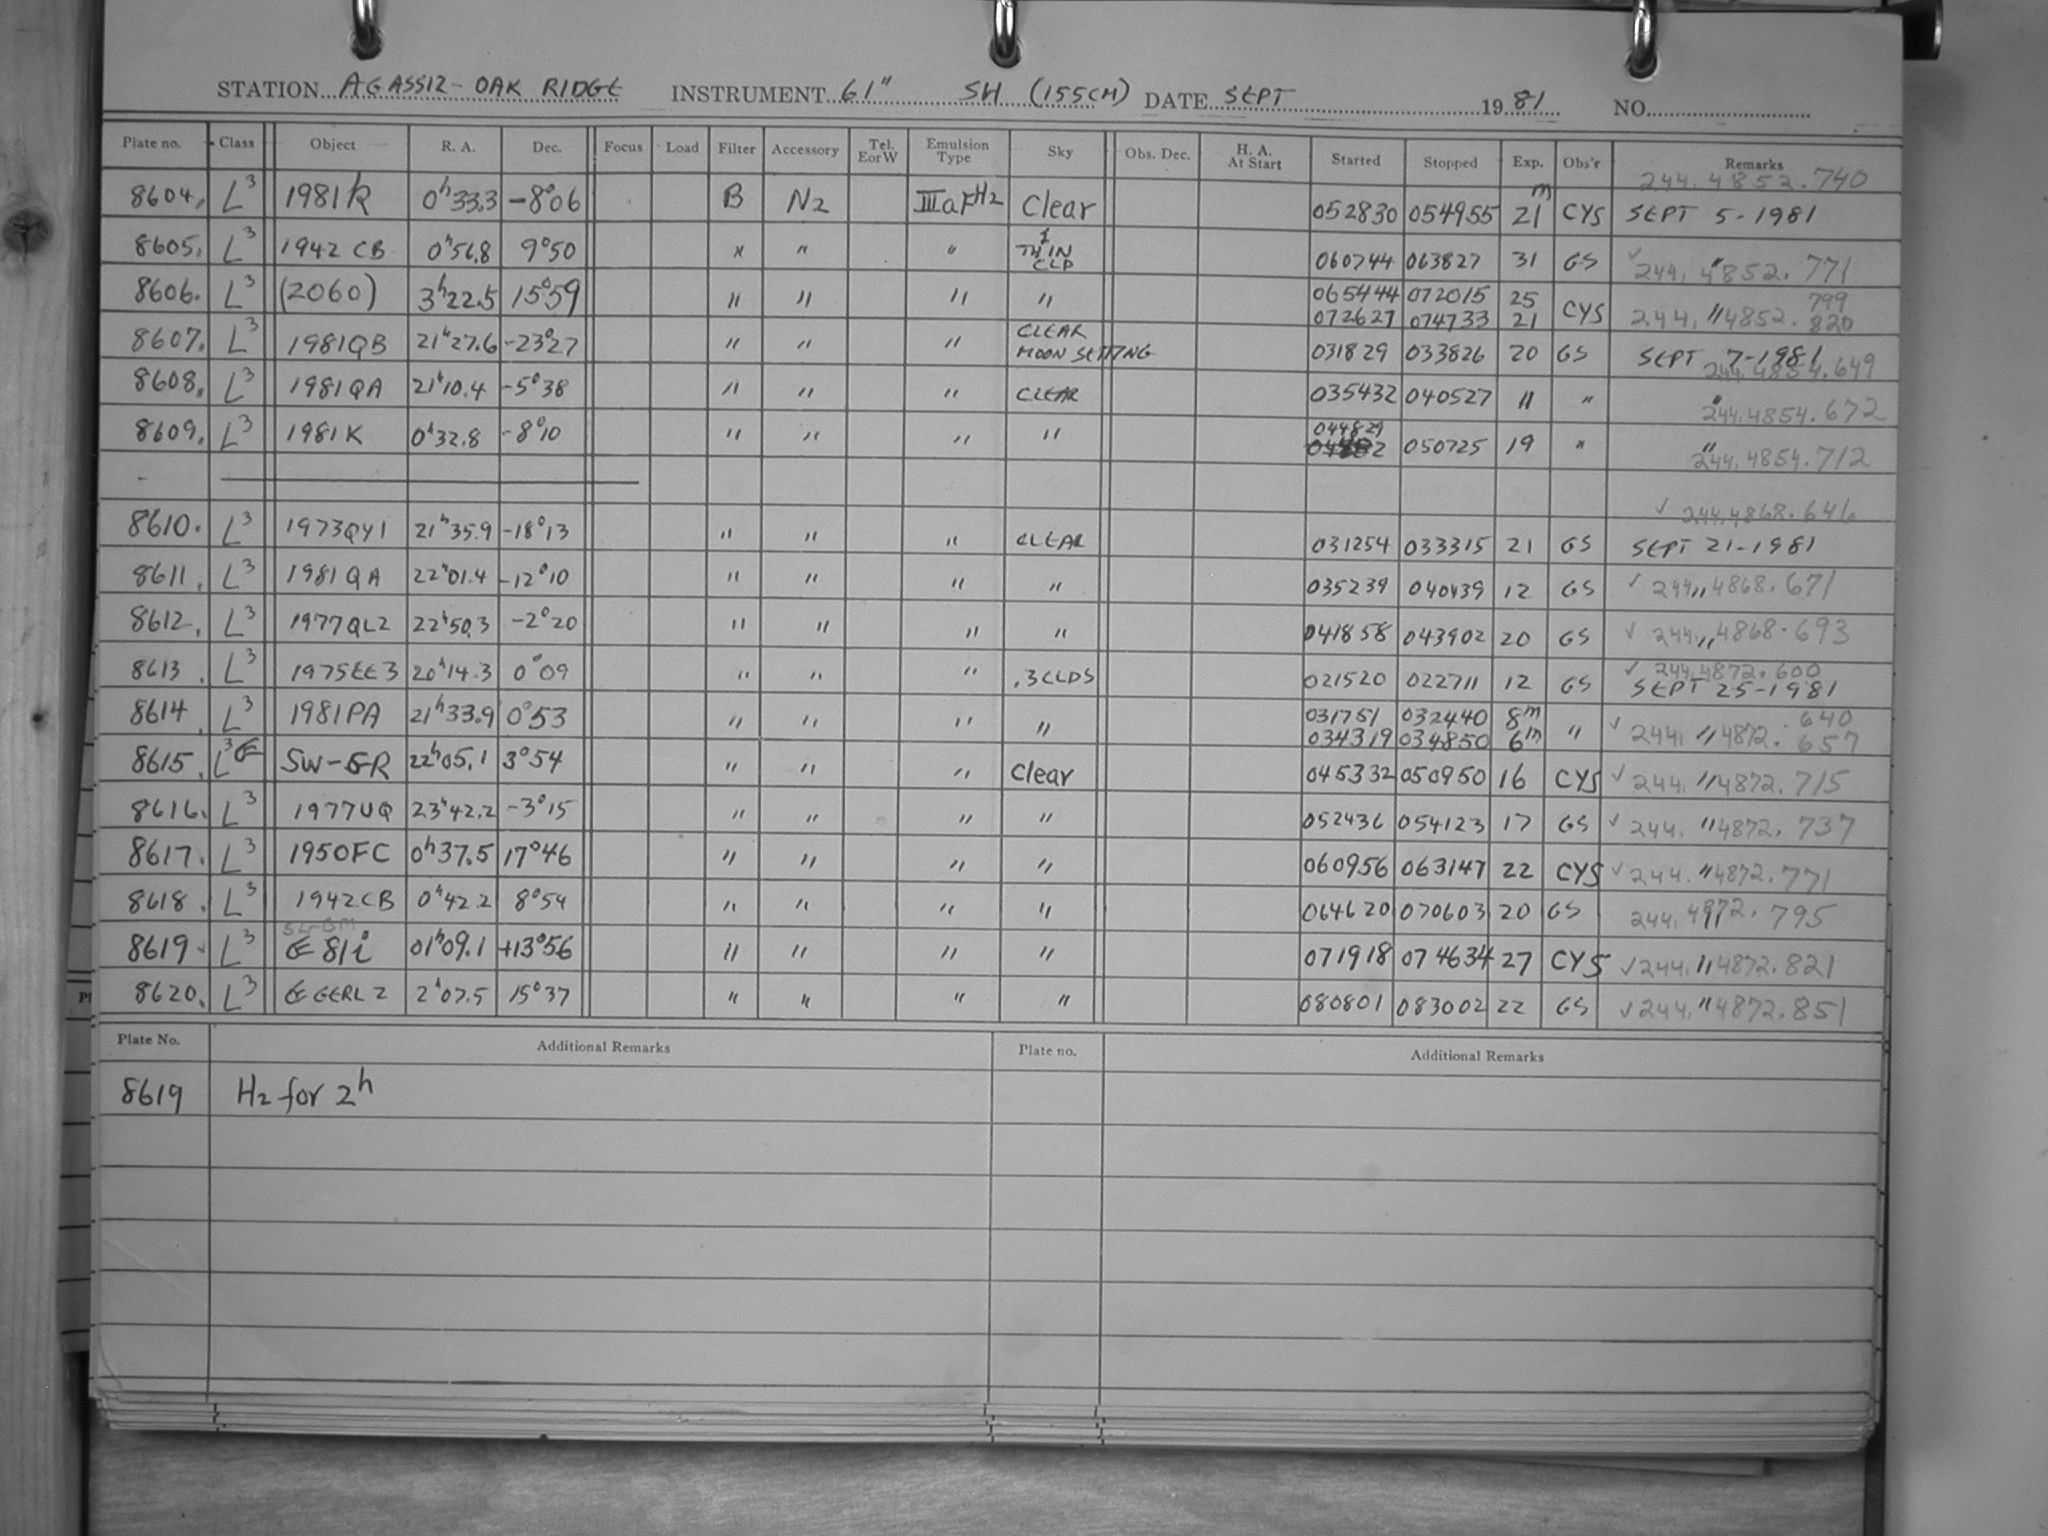 STATION AGASSIZ-OAK RIDGE INSTRUMENT 61" SH (155CM) DATE SEPT 1981 NO.
Plate no. Class Object R. A. Dec. Focus Load Filter Accessory Tel. E or W Emulsion Type Sky Obs. Dec. H. A. At Start Started Stopped Exp. Obs'r Remarks
244.4852.740
8604. L³ 1981k 0ʰ33.3 -8°06 B N2 IIIaF H2 Clear 052830 054955 21ᵐ CYS SEPT 5-1981
8605. L³ 1942 CB 0ʰ56.8 9°50 " " " THIN CLD 060744 063827 31 GS ✓ " 244.4852.771
8606. L³ (2060) 3ʰ22.5 15°59 " " " " 065444 072015 25 CYS 244. " 4852.799
072627 074733 21 820
8607. L³ 1981QB 21ʰ27.6 -23°27 " " " CLEAR MOON SETTING 031829 033826 20 GS SEPT 7-1981
244.4854.649
8608. L³ 1981QA 21ʰ10.4 -5°38 " " " CLEAR 035432 040527 11 " " 244.4854.672
8609. L³ 1981K 0ʰ32.8 -8°10 " " " " 044829 050725 19 " " 244.4854.712
-
✓ 244.4868.646
8610. L³ 1973QY1 21ʰ35.9 -18°13 " " " CLEAR 031254 033315 21 GS SEPT 21-1981
8611. L³ 1981QA 22ʰ01.4 -12°10 " " " " 035239 040439 12 GS ✓ 244. " 4868.671
8612. L³ 1977QL2 22ʰ50.3 -2°20 " " " " 041858 043902 20 GS ✓ 244. " 4868.693
✓ 244.4872.600
8613. L³ 1975EE3 20ʰ14.3 0°09 " " " .3CLDS 021520 022711 12 GS SEPT 25-1981
8614. L³ 1981PA 21ʰ33.9 0°53 " " " " 031751 032440 8ᵐ " ✓ 244. " 4872.640
034319 034850 6ᵐ 657
8615. L³ SW-GR 22ʰ05.1 3°54 " " " Clear 045332 050950 16 CYS ✓ 244. " 4872.715
8616. L³ 1977UQ 23ʰ42.2 -3°15 " " " " 052436 054123 17 GS ✓ 244. " 4872.737
8617. L³ 1950FC 0ʰ37.5 17°46 " " " " 060956 063147 22 CYS ✓ 244. " 4872.771
8618. L³ 1942CB 0ʰ42.2 8°54 " " " " 064620 070603 20 GS 244.4872.795
8619. L³ 81i 01ʰ09.1 +13°56 " " " " 071918 074634 27 CYS ✓ 244. " 4872.821
8620. L³ GERL2 2ʰ07.5 15°37 " " " " 080801 083002 22 GS ✓ 244. " 4872.851
Plate No. Additional Remarks Plate no. Additional Remarks
8619 H2 for 2ʰ